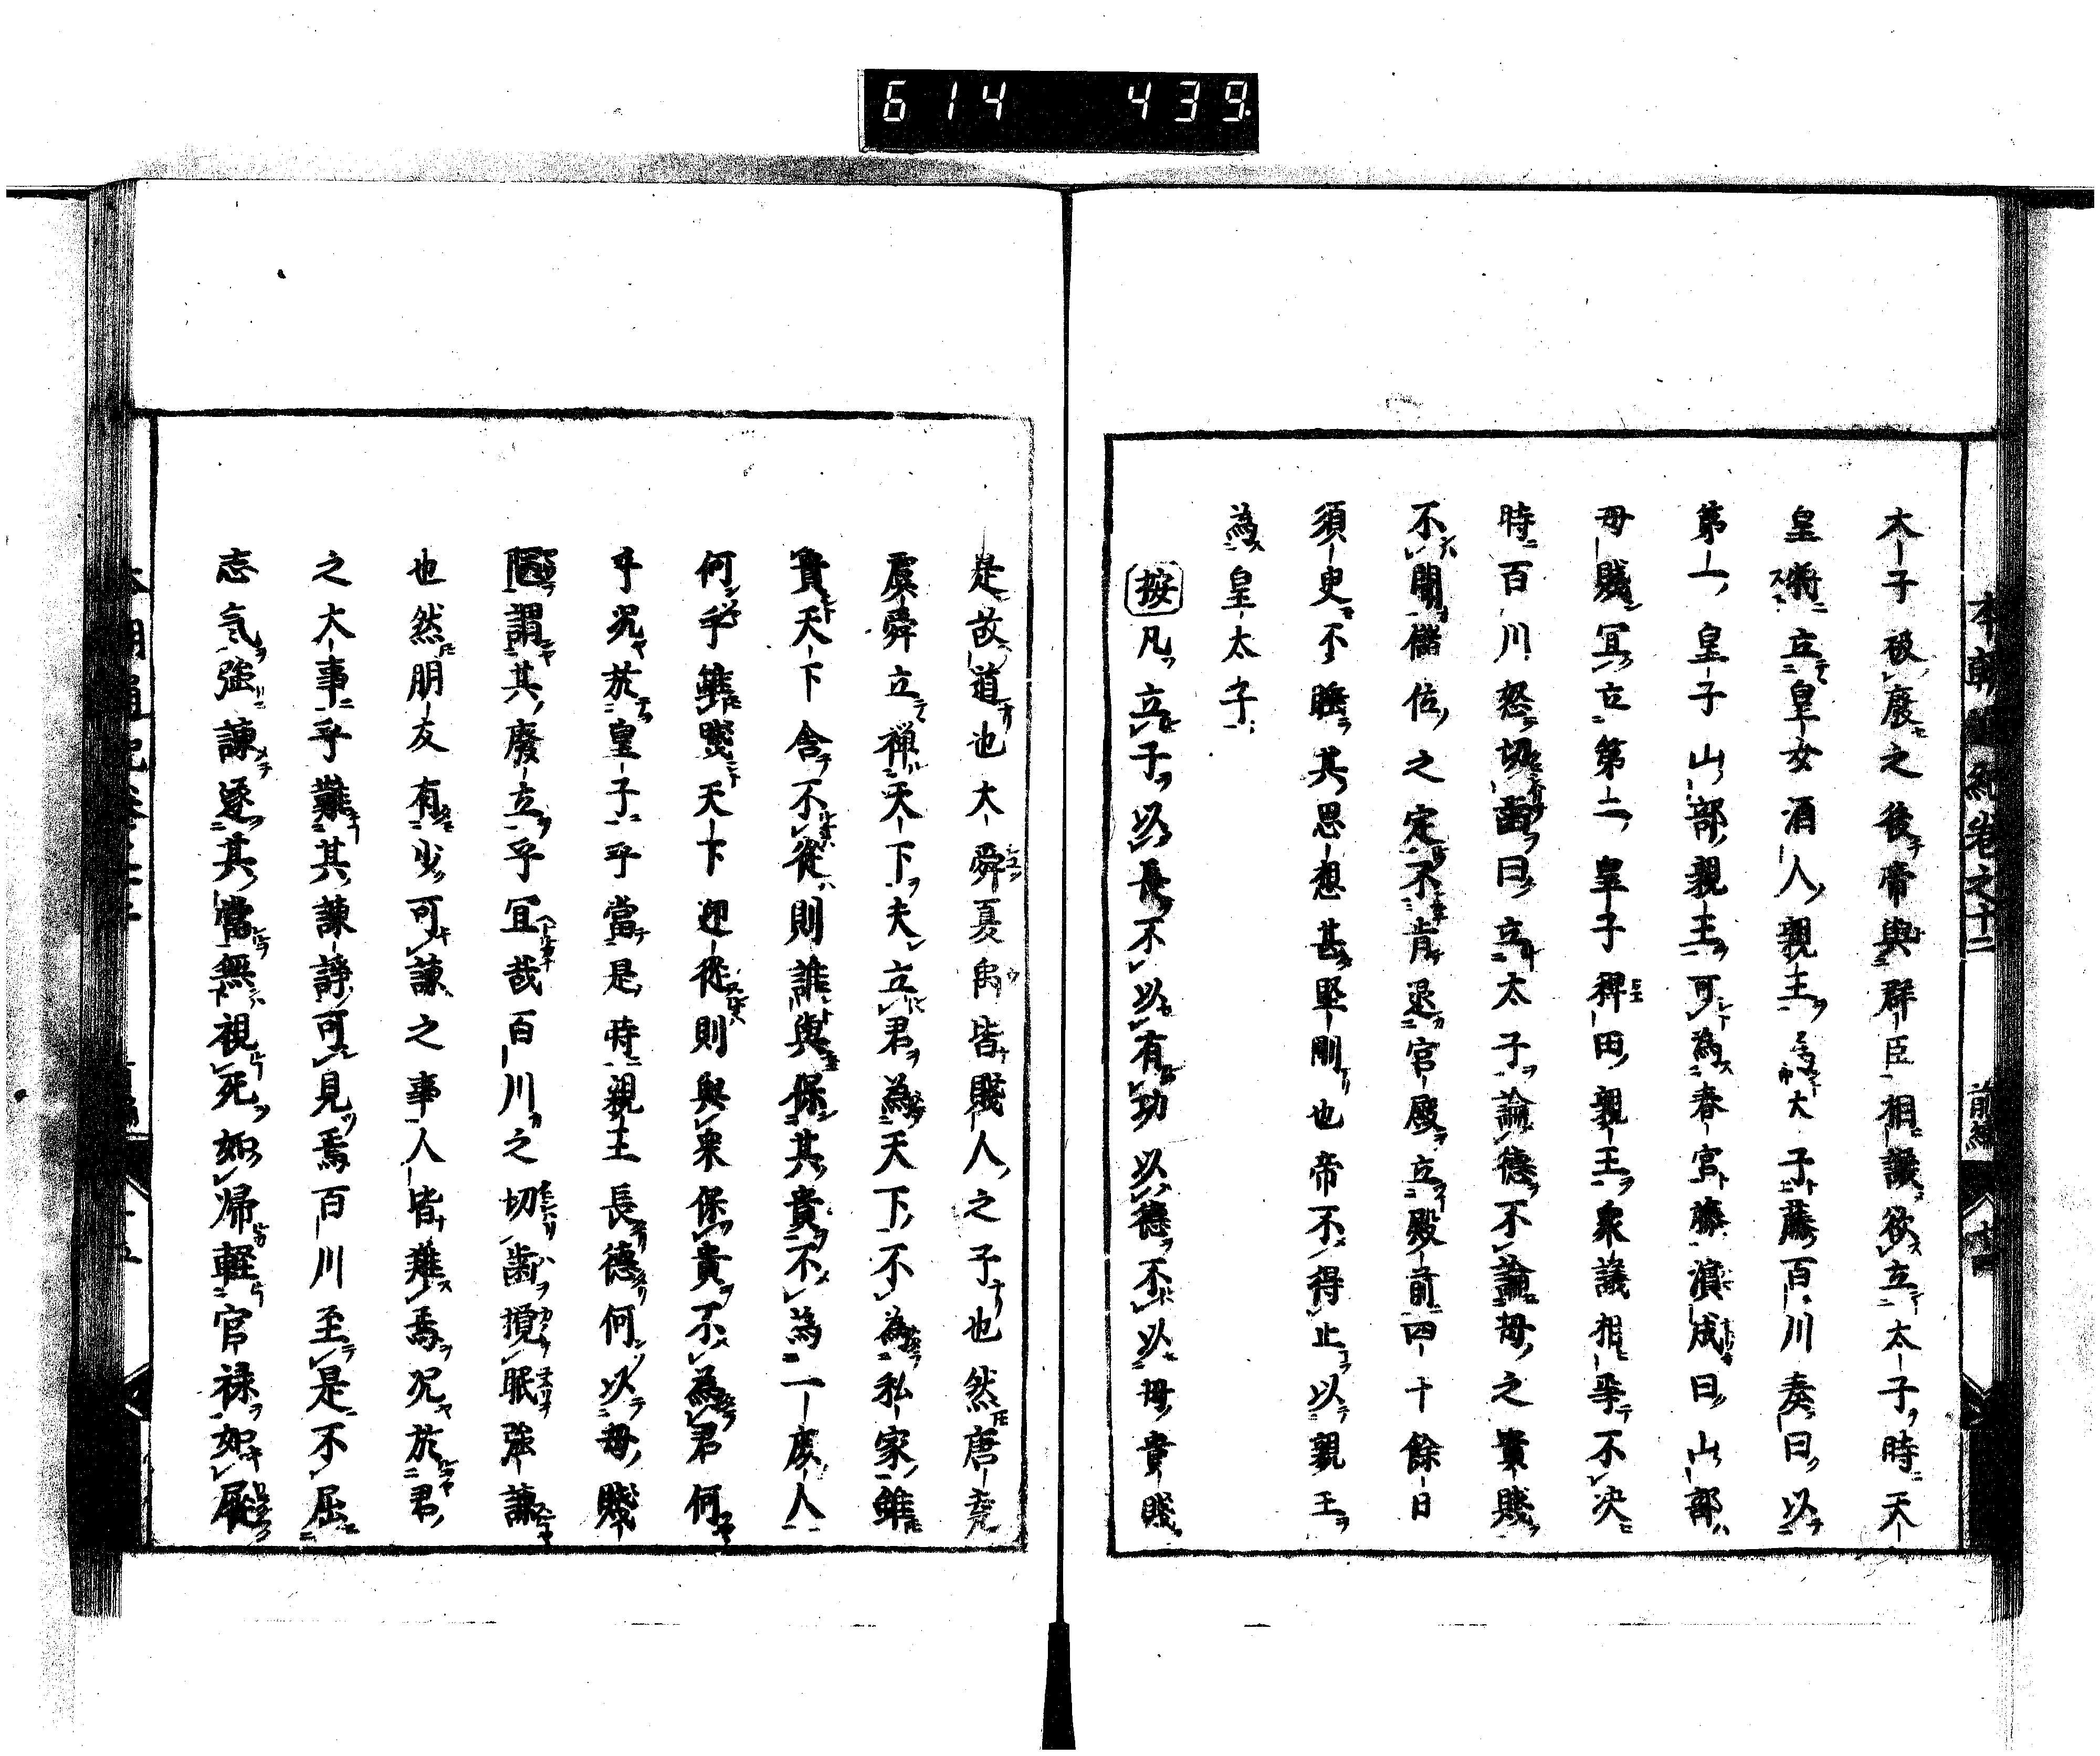 614 439
本朝通紀卷之十二 前編
太子被廢之後帝與群臣相議欲立太子時天
皇將立皇女酒人親王為太子藤百川奏曰以
第一皇子山部親王可為春宮藤濱成曰山部
母賤宜立第二皇子稗田親王衆議相爭不决
時百川怒切齒曰立太子論德不論母之貴賤
不聞儲位之定不肯退官殿立殿前四十餘日
須臾不睡其思想甚堅剛也帝不得止以親王
為皇太子
按凡立子以長不以有功以德不以母貴賤
是故道也大舜夏禹皆賤人之子也然唐堯
虞舜立禅天下夫立君為天下不為私家雖
貴天下舍不從則誰與保其貴不為一庶人
何乎雖賤天下迎從則與衆保貴不為君何
乎况於皇子乎當是時親王長德何以母賤
謂其廢立乎宜哉百川之切齒攪眠強諫
也然朋友有少可諫之事人皆難焉况於君
之大事乎難其諫諍可見焉百川至是不屈
志気強諫逐其當無視死如帰軽官禄如屣